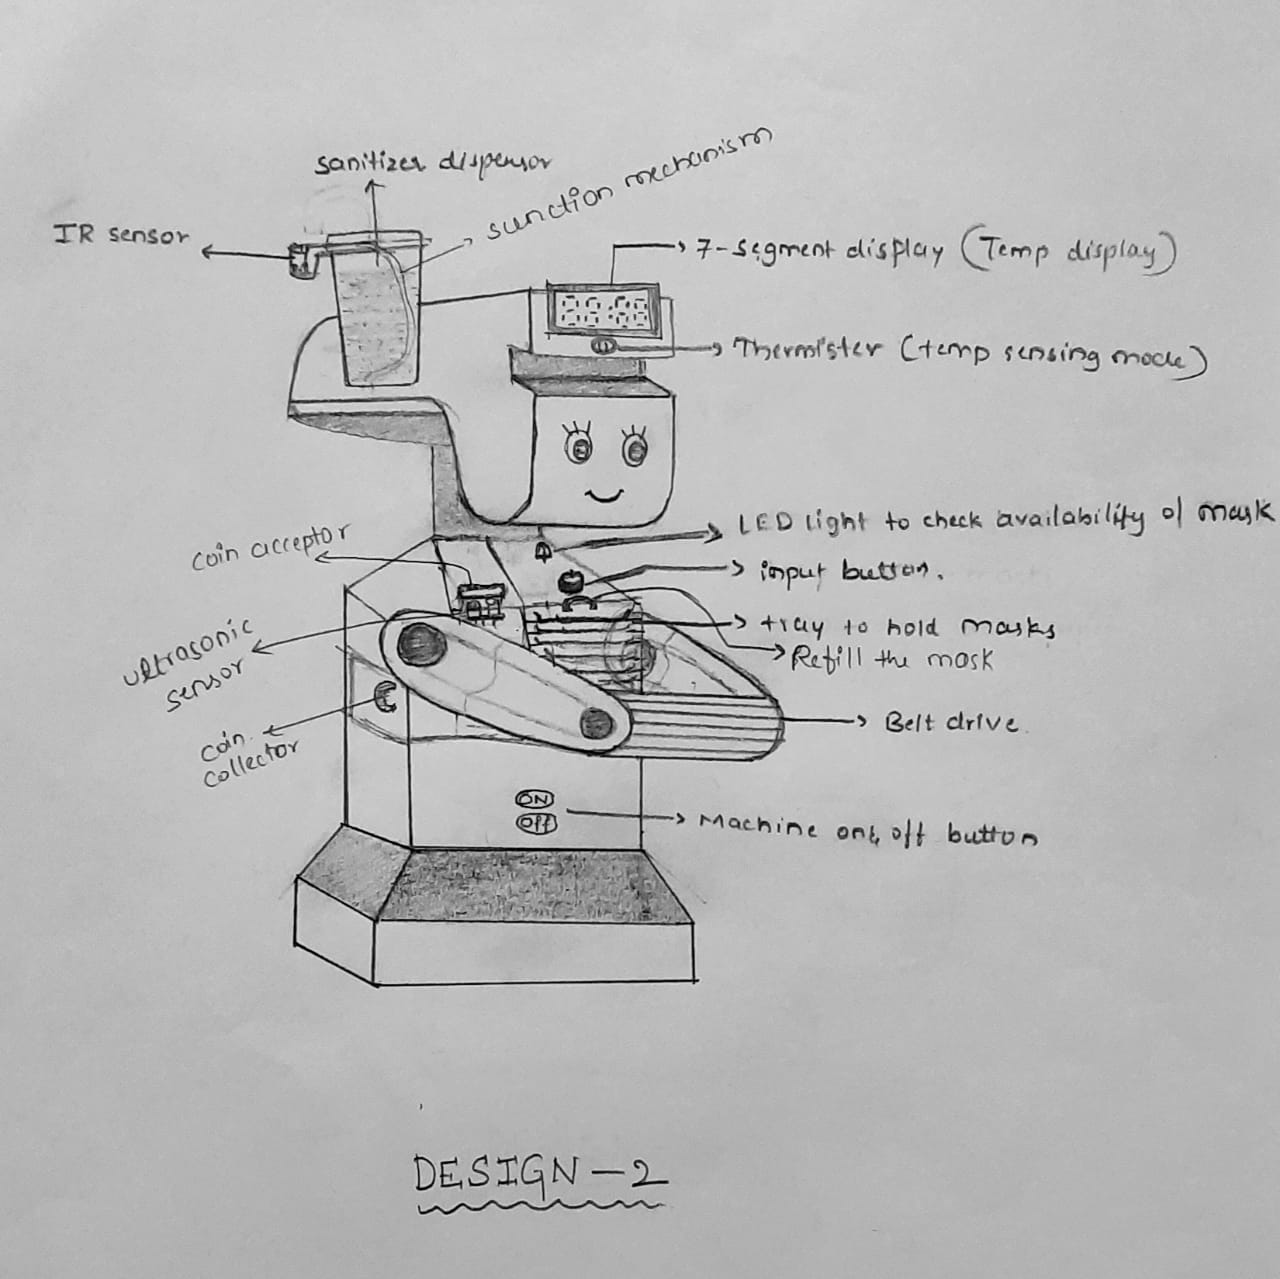 sanitizer dispensor
sunction mechanism
IR sensor
7-segment display (Temp display)
Thermister (temp sensing mode)
LED light to check availability of mask
coin acceptor
input button.
tray to hold masks
ultrasonic
sensor
Refill the mask
coin
collector
Belt drive
ON
Off
Machine on & off button
DESIGN-2